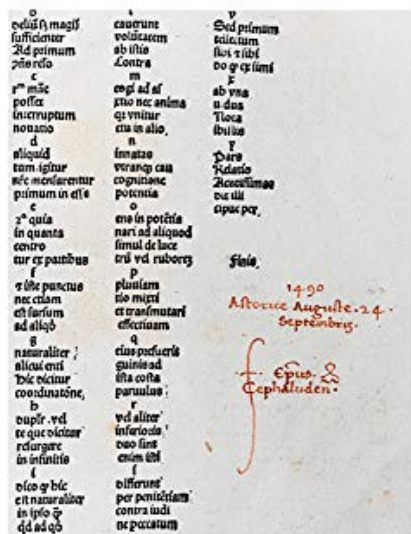 b
deliū ſʒ magis
ſufficienter
Ad primum
pñs reſo
c
rᵐ mãe
poſſet
interruptum
nouatio
d
aliquid
tam.igitur
menſurentur
primum in eſſe
e
2ᵃ quia
in quanta
centro
tur ex partibus
f
t iſte punctus
nec etiam
eſt ſurſum
ad aliqð
g
naturaliter ;
alicui enti
hic dicitur
coordinatõne,
h
vel
te que dicitur
reſurgere
in infinitis
i
dico ꝙ hic
eſt naturaliter
in ipſo
qd ad qð
l
cauerunt
voluntatem
ab iſtis
Contra
m
cogi ad eſ
ctio nec anima
qʒ vnitur
etia in alio,
n
innatas
veranqʒ cau
cognitione
potentia
o
ens in potẽtia
nari ad aliquod
ſimul de luce
tris vel ruboreʒ
p
pluuiam
tio mixti
et tranſmutari
effectiuam
q
eius
guinis ad
iſta coſta
paruulus ;
r
vel aliter
inferiocis ;
duo ſint
enim
ſ
differunt
per penitẽtiam
contra iudi
ne peccatum
v
Sed primum
ſui t ſibi
do ꝙ ex ſimi
x
ab vna
u dua
Nota
ibilis
y
Pars
Relatio
due illi
cipue per,
Finis.
1490
Astorice Auguste. 24.
Septembris.
f. Epũs.
Cephaluden.